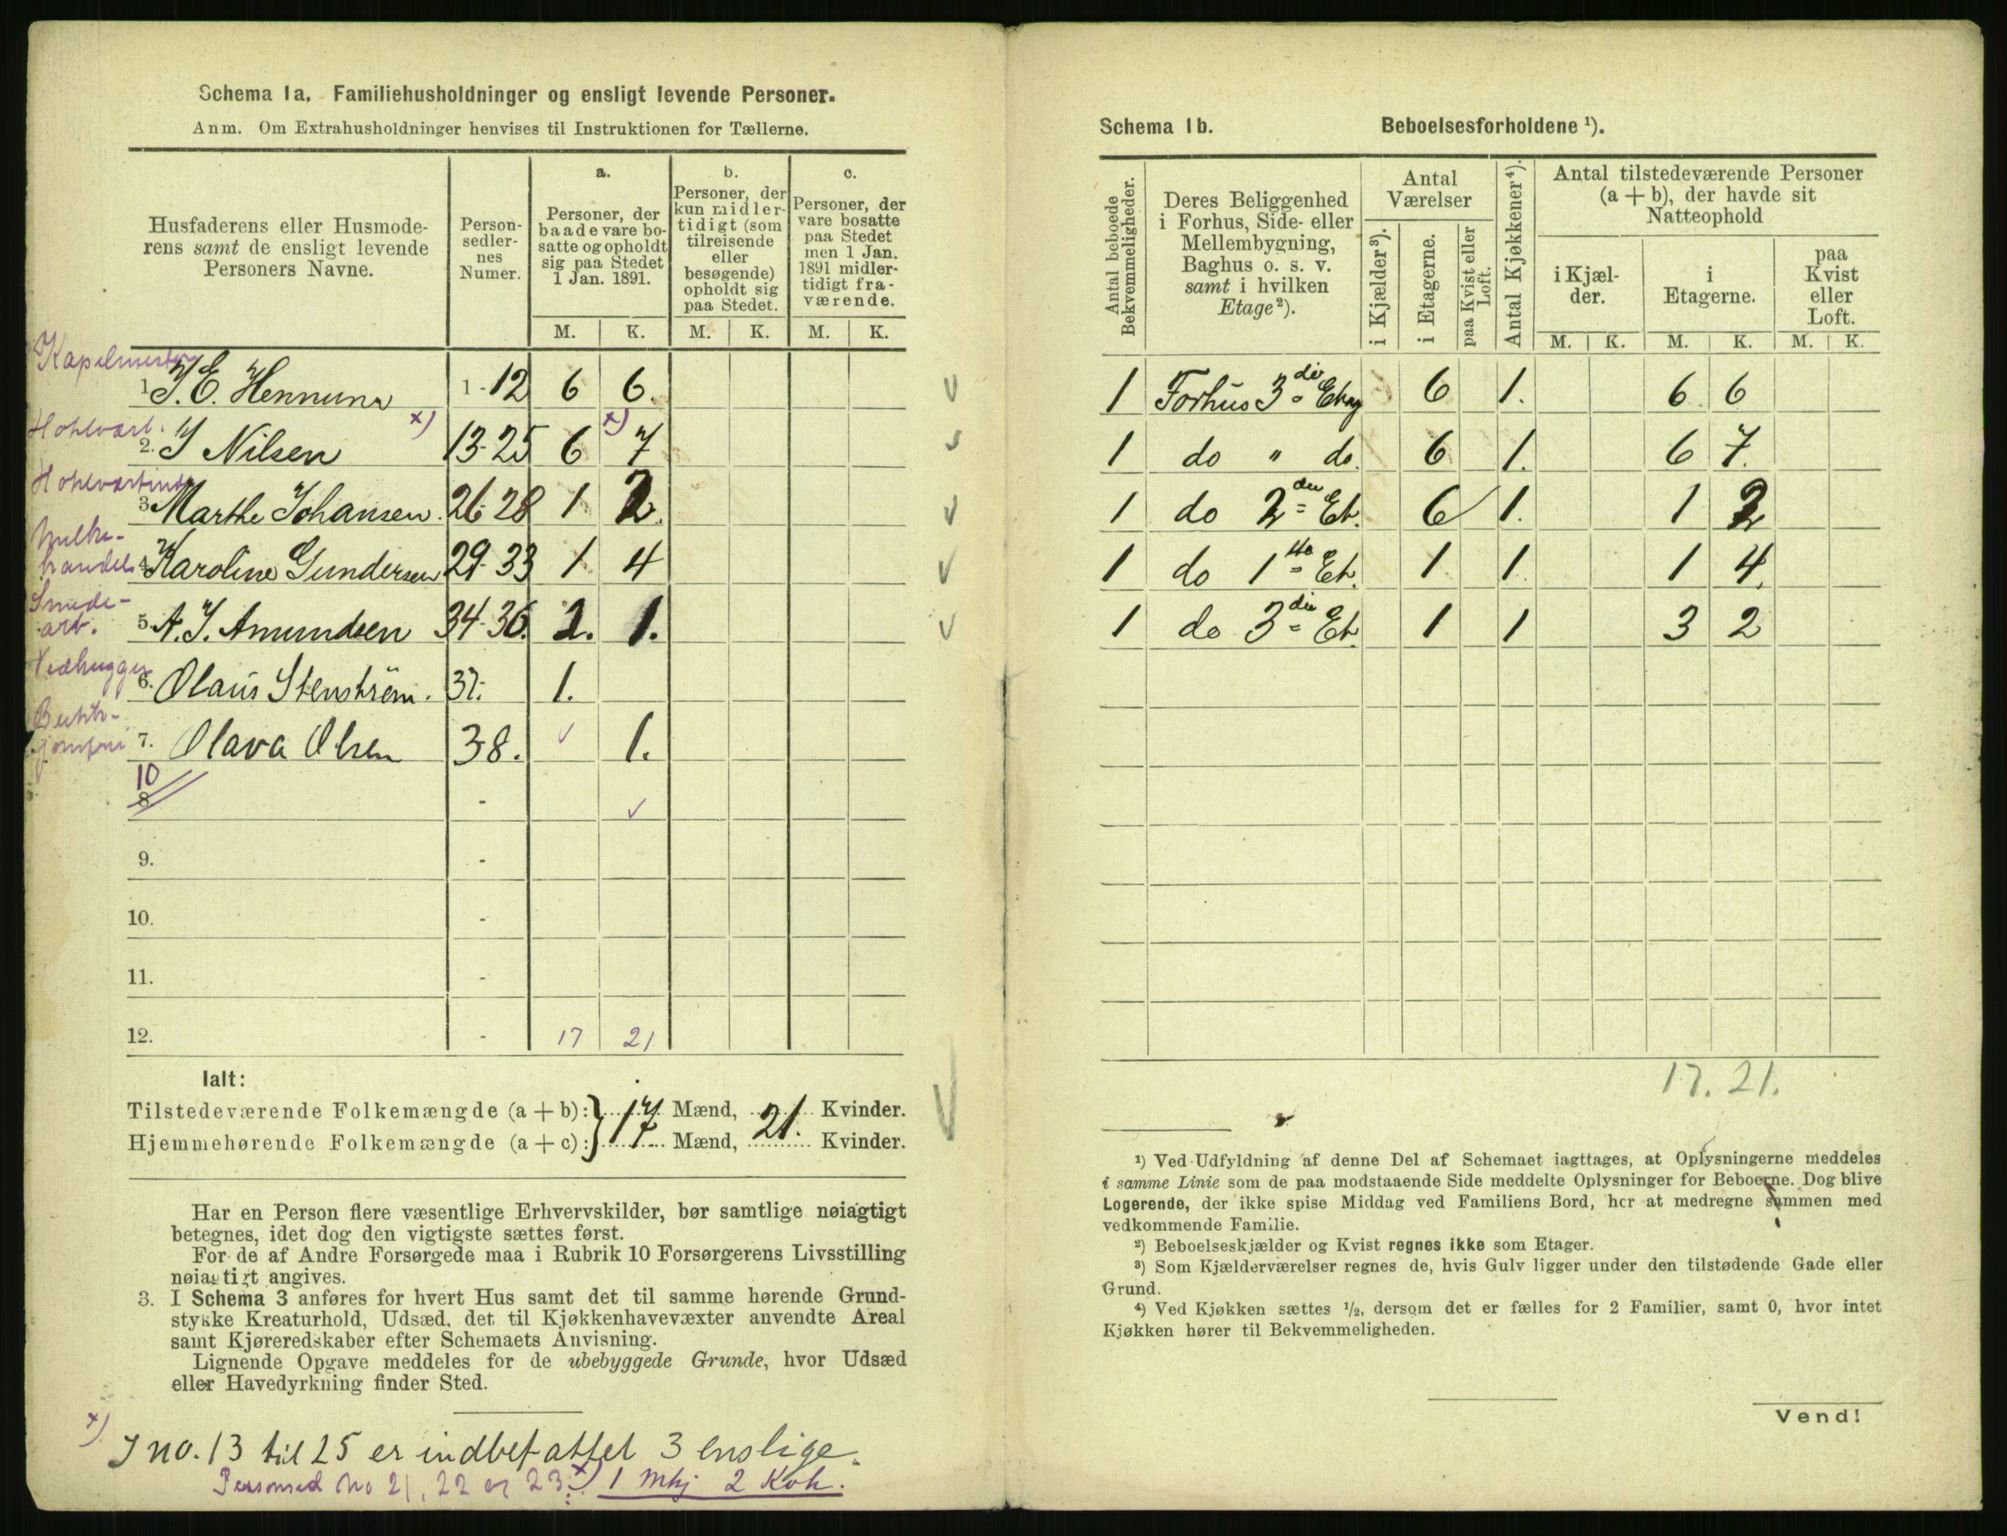 Schema 1a. Familiehusholdninger og ensligt levende Personer.
Anm. Om Extrahusholdninger henvises til Instruktionen for Tællerne.
Husfaderens eller Husmoderens samt de ensligt levende Personers Navne.
Personsedlernes Numer.
a. Personer, der baade vare bosatte og opholdt sig paa Stedet 1 Jan. 1891.
b. Personer, der kun midlertidigt (som tilreisende eller besøgende) opholdt sig paa Stedet.
c. Personer, der vare bosatte paa Stedet men 1 Jan. 1891 midlertidigt fraværende.
M. K. M. K. M. K.
1. J. E. Hennum 1-12 6 6.
2. J Nilsen x) 13-25 6 x) 7
3. Marthe Johansen. 26-28 1 2.
4. Karoline Gundersen 29-33 1 4
5. A. J. Amundsen 34-36. 2. 1.
Vedhugger
6. Olaus Stenström. 37. 1.
7. Olava Olsen 38. 1.
10
8 -
9. -
10. -
11. -
12. - 17 21
Ialt:
Tilstedeværende Folkemængde (a + b): 17 Mænd, 21. Kvinder.
Hjemmehørende Folkemængde (a + c): Mænd, Kvinder.
Har en Person flere væsentlige Erhvervskilder, bør samtlige nøiagtigt
betegnes, idet dog den vigtigste sættes først.
For de af Andre Forsørgede maa i Rubrik 10 Forsørgerens Livsstilling
nøiagtigt angives.
3. I Schema 3 anføres for hvert Hus samt det til samme hørende Grund-
stykke Kreaturhold, Udsæd, det til Kjøkkenhavevæxter anvendte Areal
samt Kjøreredskaber efter Schemaets Anvisning.
Lignende Opgave meddeles for de ubebyggede Grunde, hvor Udsæd
eller Havedyrkning finder Sted.
x) I no. 13 til 25 er indbefattet 3 enslige.
Personsed No 21, 22 og 23. x) 1 Mkj 2 Kvk.
Schema 1b. Beboelsesforholdene ¹).
Antal beboede Bekvemmeligheder.
Deres Beliggenhed i Forhus, Side- eller Mellembygning, Baghus o. s. v. samt i hvilken Etage²).
Antal Værelser
i Kjælder³).
i Etagerne.
paa Kvist eller Loft.
Antal Kjøkkener⁴).
Antal tilstedeværende Personer (a + b), der havde sit Natteophold
i Kjælder.
i Etagerne.
paa Kvist eller Loft.
M. K. M. K. M. K.
1 Forhus 3die Etag 6 1. 6 6
1 do " do. 6 1. 6 7.
1 do 2den Et. 6 1. 1 2
1 do 1ste Et. 1 1. 1 4.
1 do 3die Et. 1 1 3 2
17. 21.
¹) Ved Udfyldning af denne Del af Schemaet iagttages, at Oplysningerne meddeles
i samme Linie som de paa modstaaende Side meddelte Oplysninger for Beboerne. Dog blive
Logerende, der ikke spise Middag ved Familiens Bord, her at medregne sammen med
vedkommende Familie.
²) Beboelseskjælder og Kvist regnes ikke som Etager.
³) Som Kjælderværelser regnes de, hvis Gulv ligger under den tilstødende Gade eller
Grund.
⁴) Ved Kjøkken sættes ½, dersom det er fælles for 2 Familier, samt 0, hvor intet
Kjøkken hører til Bekvemmeligheden.
Vend!